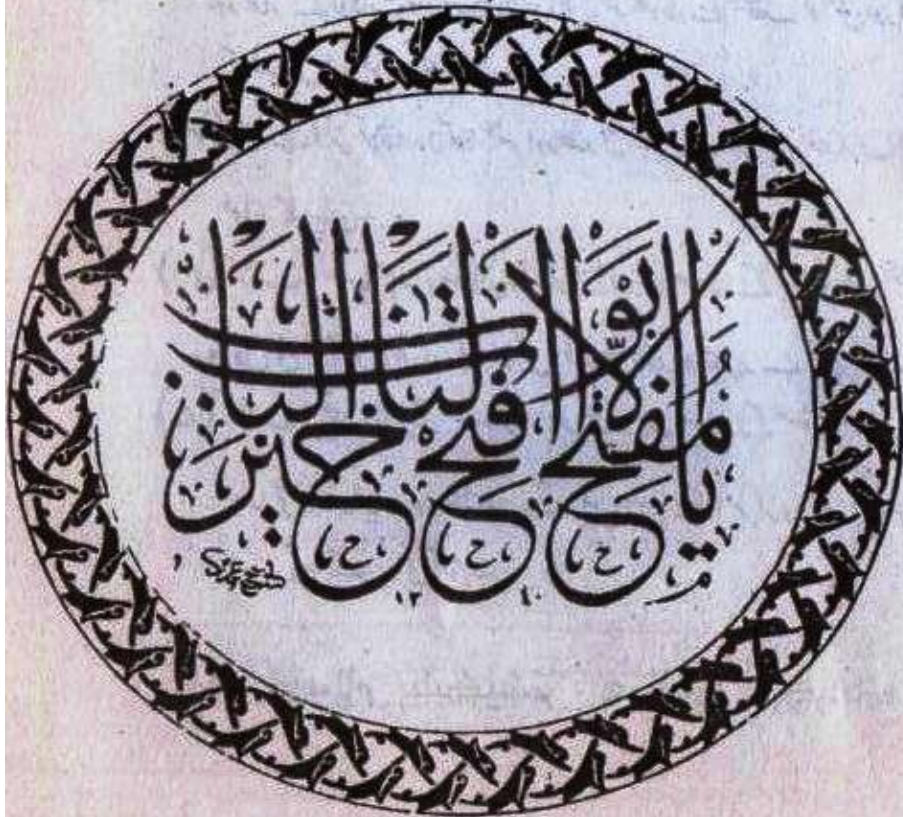 يا مفتح الابواب افتح لنا خير الباب